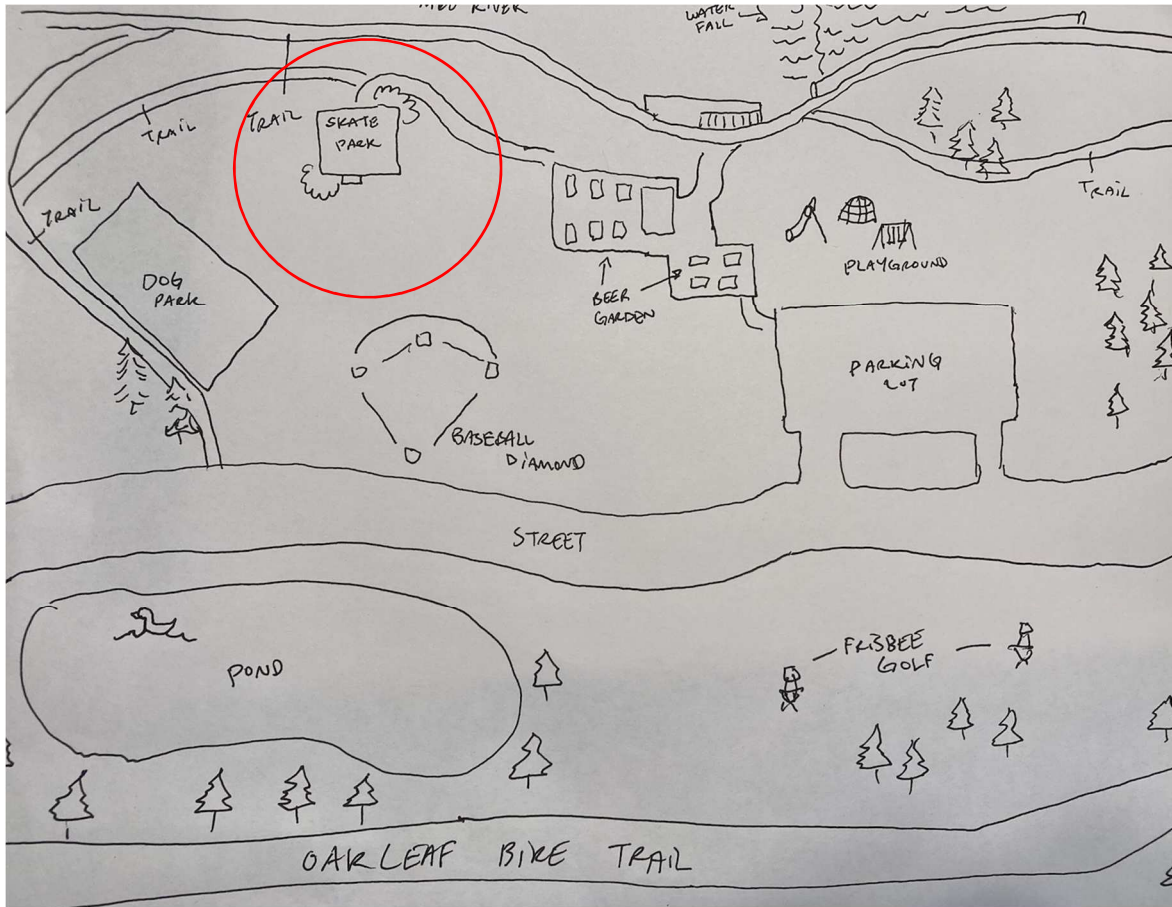 RIVER
WATER
FALL
TRAIL
TRAIL
SKATE
PARK
TRAIL
TRAIL
DOG
PARK
BEER
GARDEN
PLAYGROUND
PARKING
LOT
BASEBALL
DIAMOND
STREET
POND
FRISBEE
GOLF
OAK LEAF BIKE TRAIL